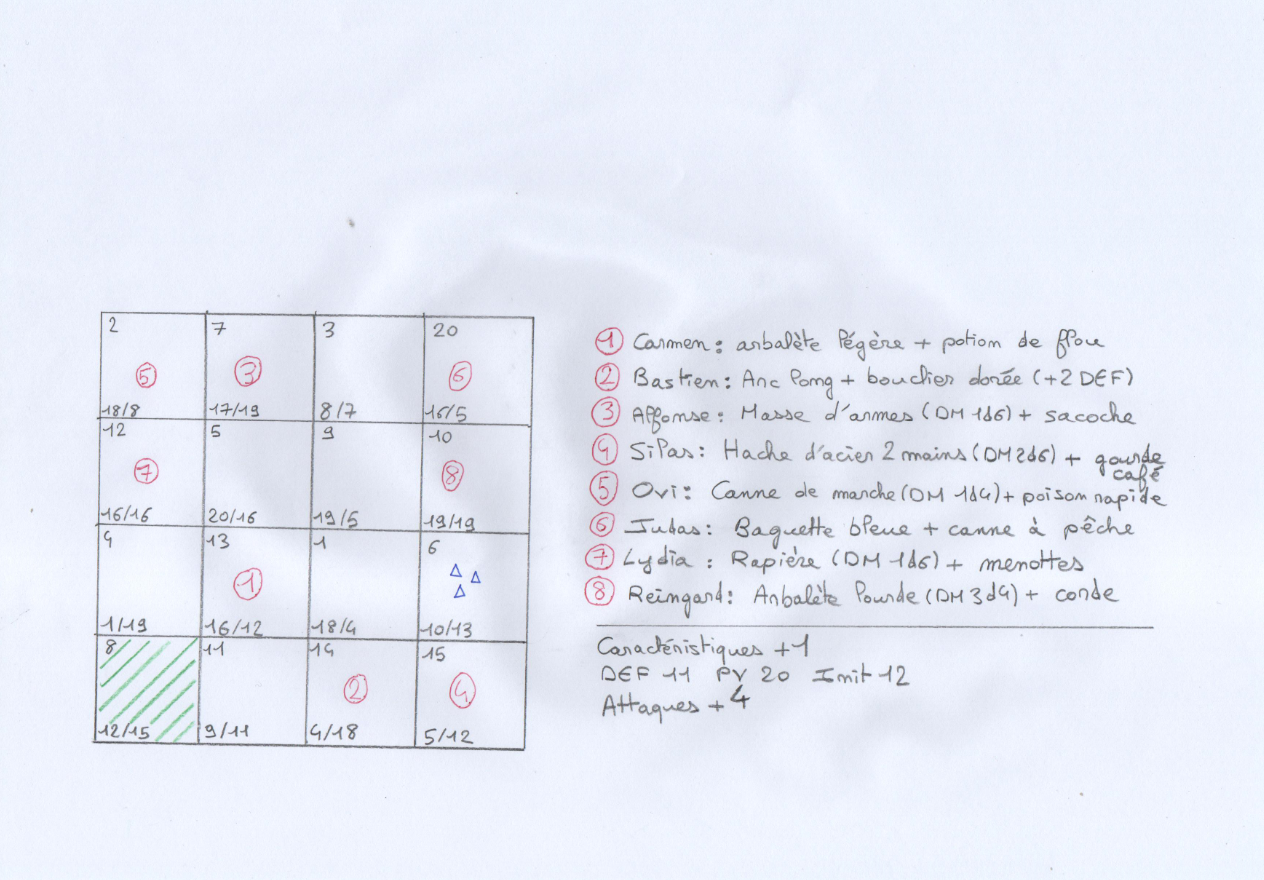 2 7 3 20
5 3 6
18/8 17/19 8/7 16/5
12 5 9 10
7 8
16/16 20/16 19/5 19/19
4 13 1 6
1
1/19 16/12 18/4 10/13
8 11 14 15
2 4
12/15 9/11 4/18 5/12
1 Carmen: arbalète légère + potion de flou
2 Bastien: Arc long + bouclier dorée (+2 DEF)
3 Alfonse: Masse d'armes (DM 1d6) + sacoche
4 Silas: Hache d'acier 2 mains (DM 2d6) + gourde
café
5 Ovi: Canne de marche (DM 1d4) + poison rapide
6 Judas: Baguette bleue + canne à pêche
7 Lydia: Rapière (DM 1d6) + menottes
8 Reingard: Arbalète lourde (DM 3d4) + corde
Caractéristiques +1
DEF 11 PV 20 Init 12
Attaques +4